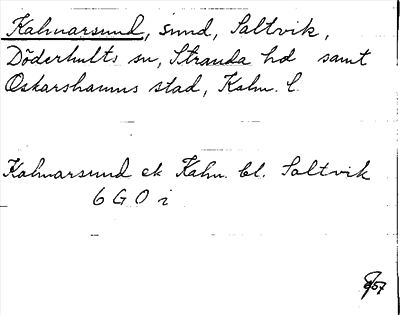 Kalmarsund, sund, Saltvik,
Döderhults sn, Stranda hd samt
Oskarshamns stad, Kalm. l.
Kalmarsund ek Kalm. bl. Saltvik
6 G 0 i